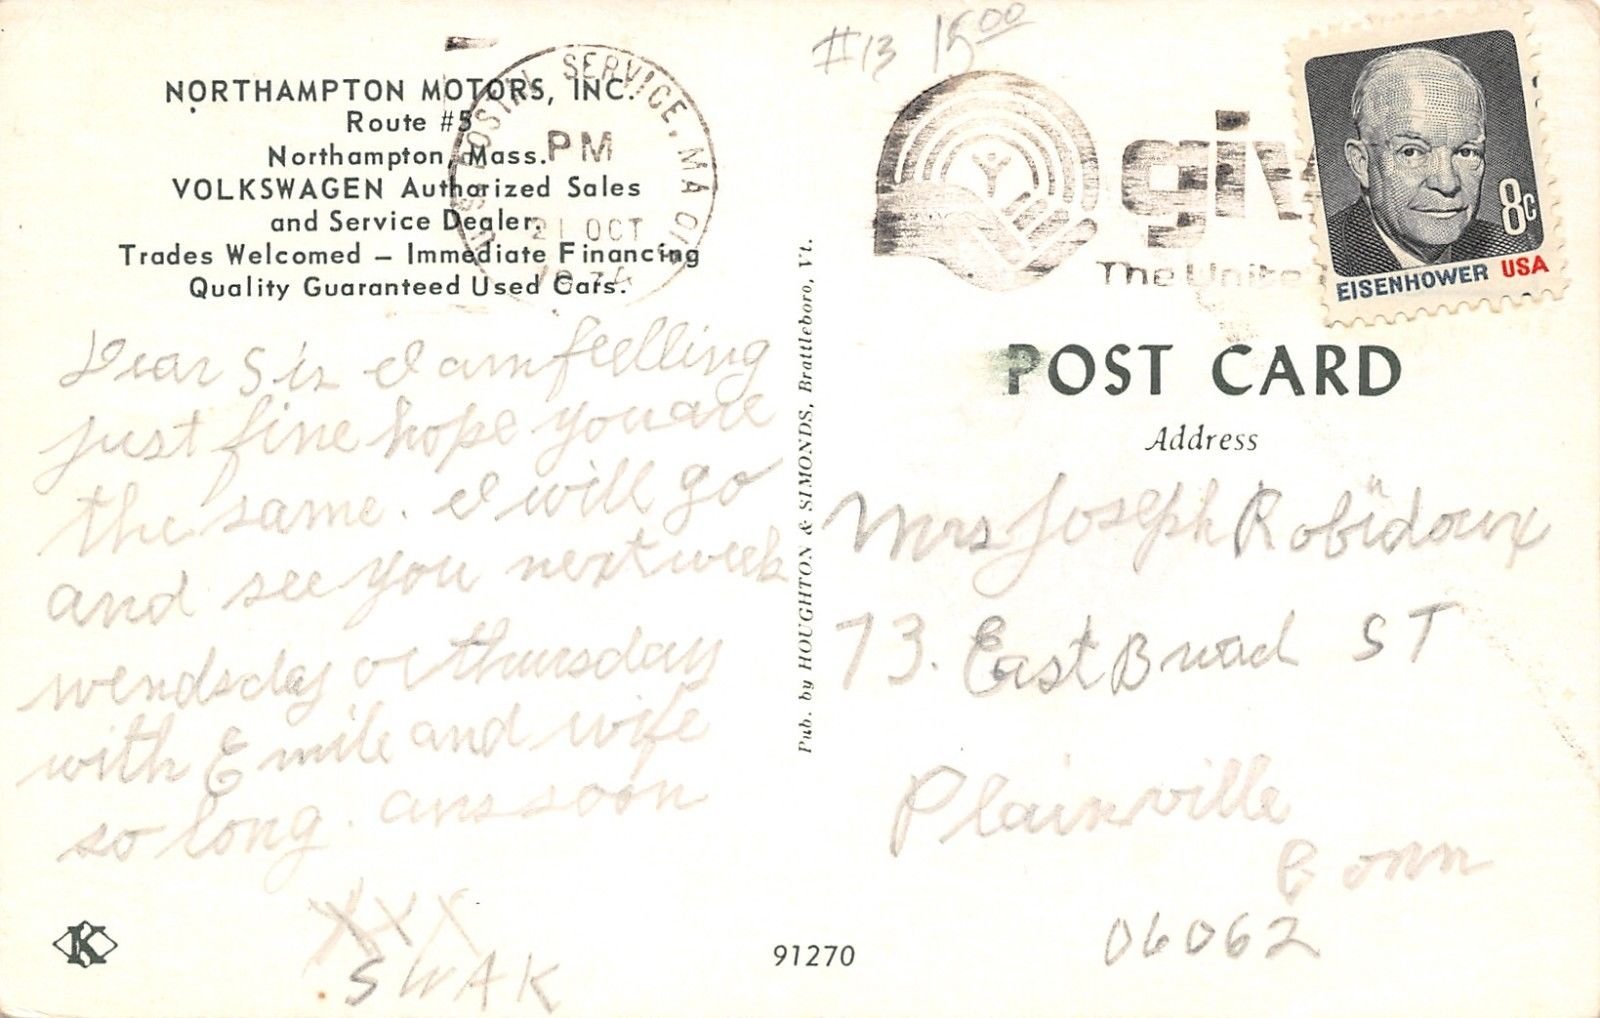 NORTHAMPTON MOTORS, INC.
Route #5
Northampton, Mass.
VOLKSWAGEN Authorized Sales
and Service Dealer.
Trades Welcomed — Immediate Financing
Quality Guaranteed Used Cars.
POSTAL SERVICE, MA 01
PM
21 OCT
Dear Sir I am feelling
just fine hope you are
the same. I will go
and see you next week
wendsday or thursday
with Emile and wife
so long. ans soon
XXX
SWAK
K
Pub. by HOUGHTON & SIMONDS, Brattleboro, Vt.
91270
#13 15.00
giv
The Unite
8c
EISENHOWER USA
POST CARD
Address
Mrs Joseph Robidoux
73. East Broad ST
Plainville
Conn
06062